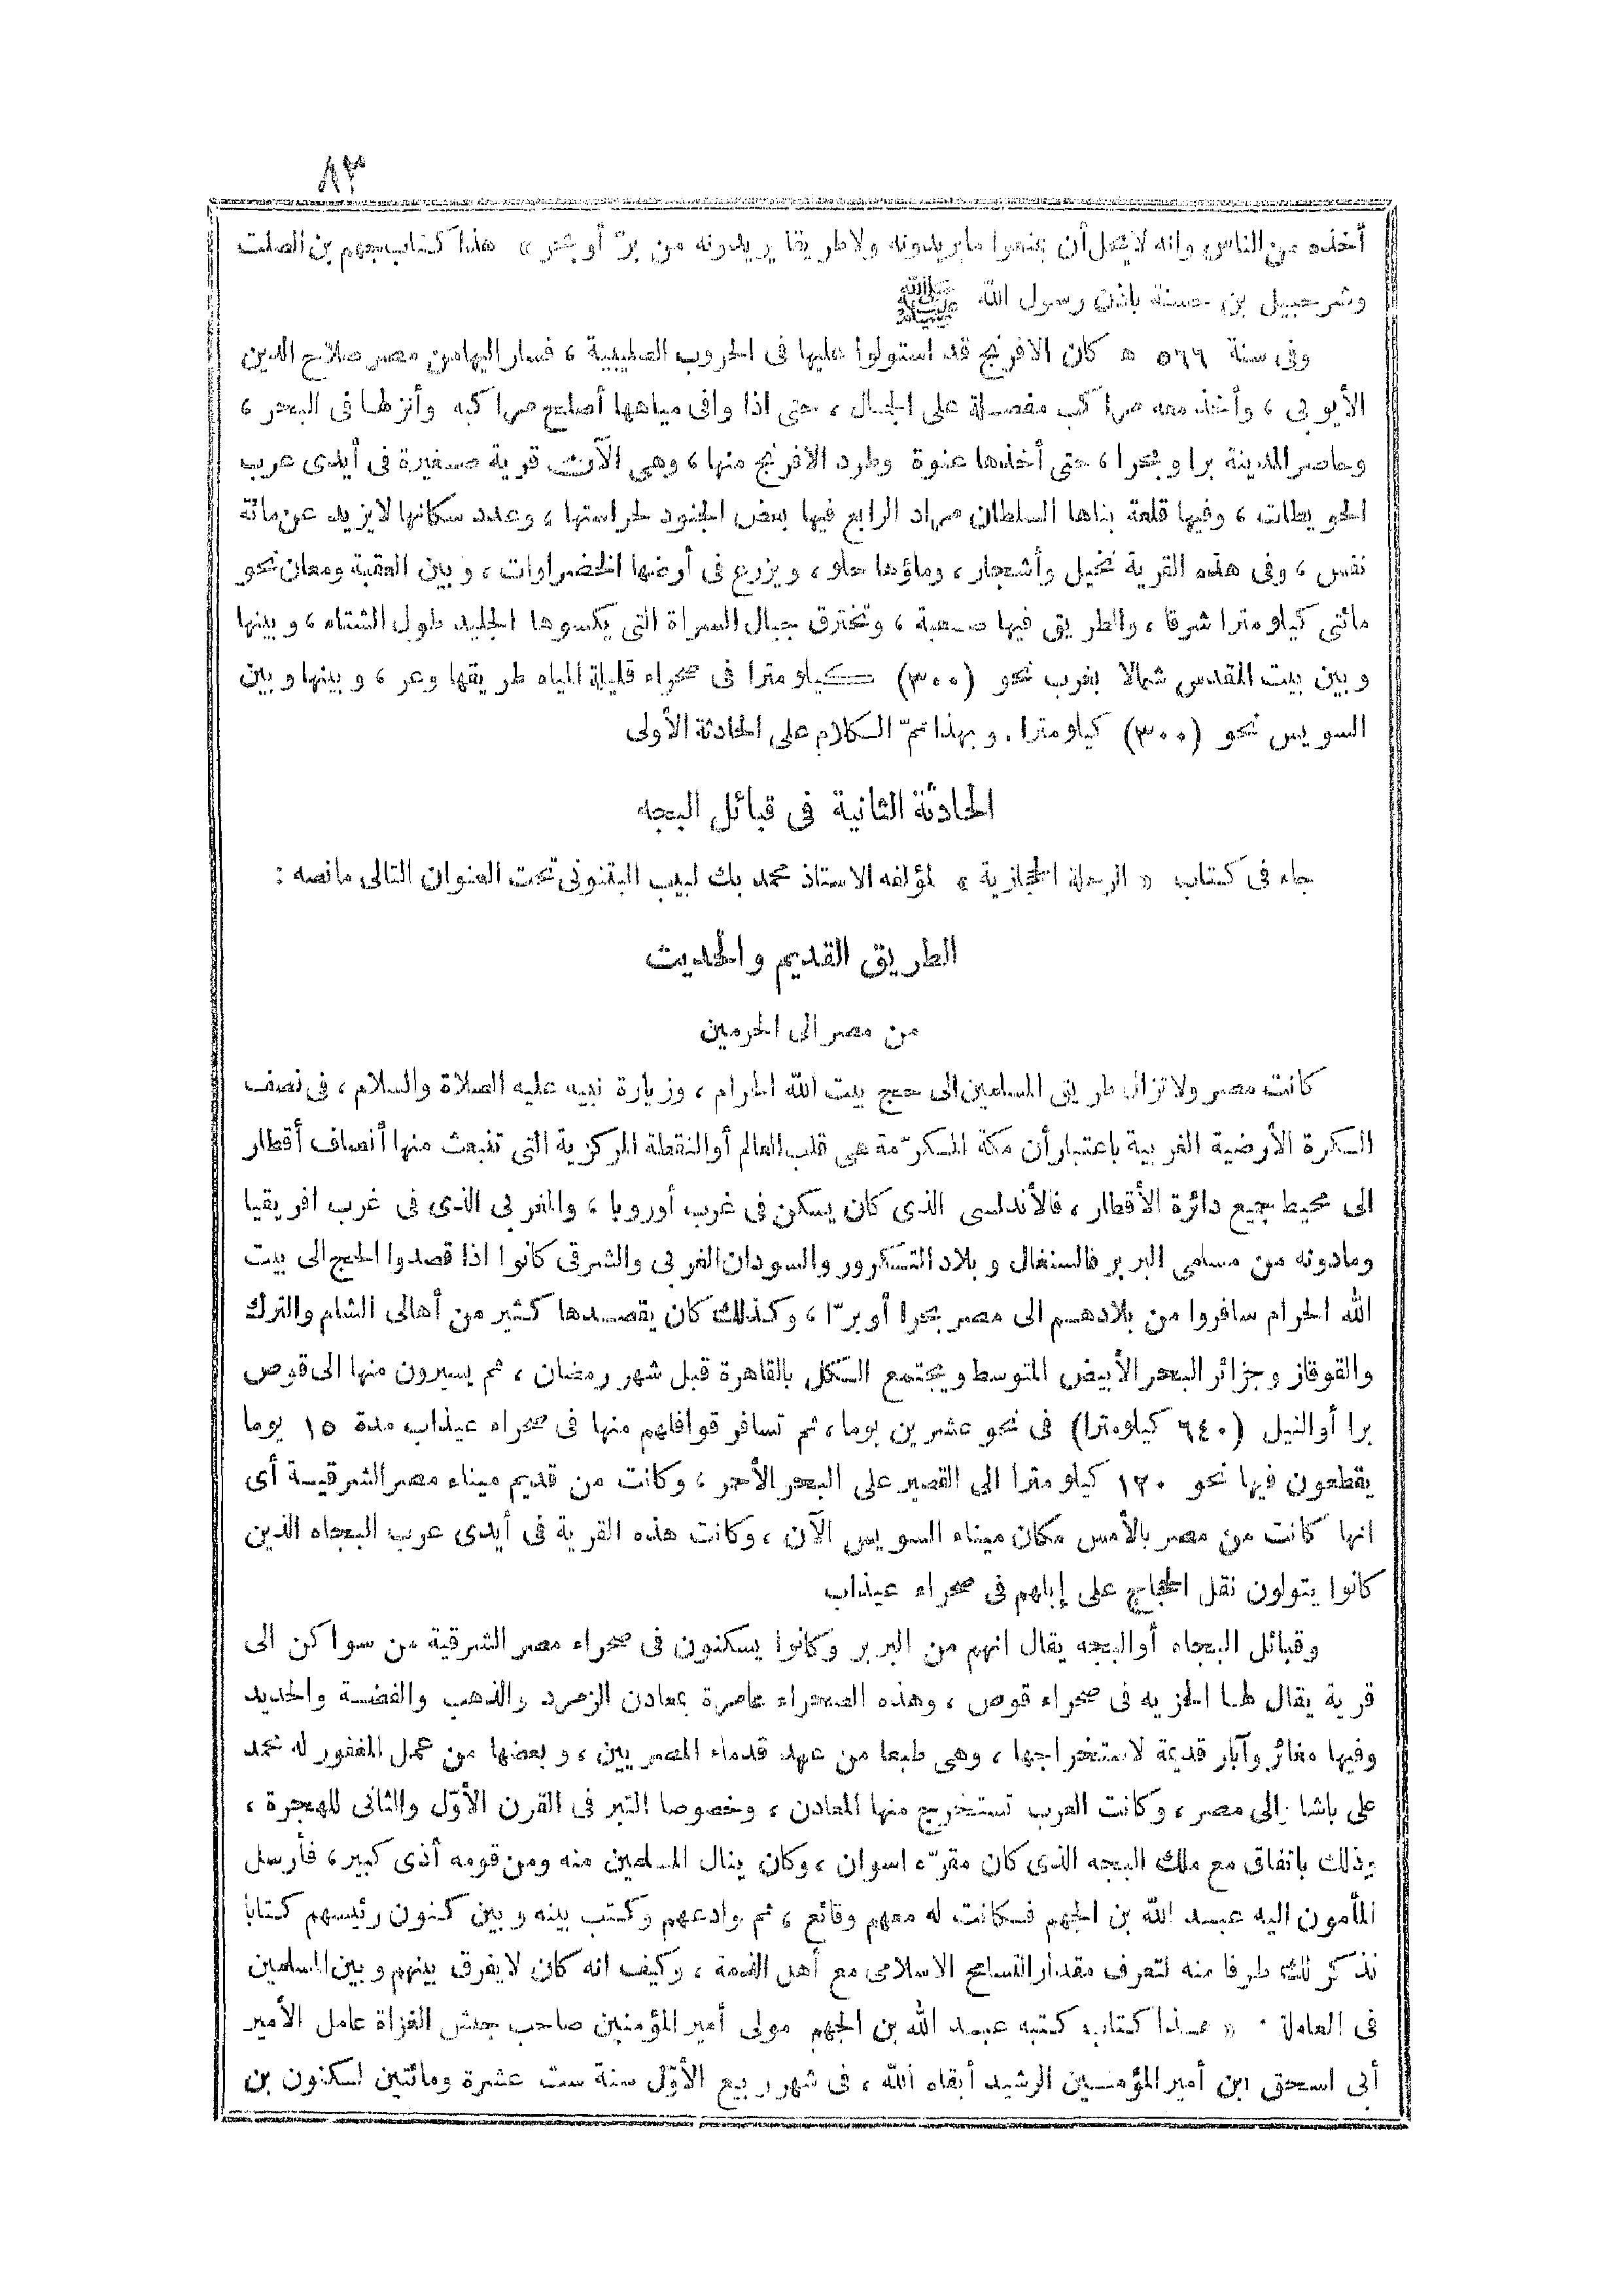 ٨٣
أخذه من الناس وانه لا يحل أن يمنعوا ما يريدونه ولا طريقا يريدونه من برّ أو بحر » هذا كتاب جهيم بن الصلت
وشرحبيل بن حسنة باذن رسول الله ﷺ
وفى سنة ٥٦٦ ه كان الافرنج قد استولوا عليها فى الحروب الصليبية ، فسار اليها من مصر صلاح الدين
الأيوبى ، وأخذ معه مراكب مفصلة على الجمال ، حتى اذا وافى مياهها أصلح مراكبه وأنزلها فى البحر ،
وحاصر المدينة برا وبحرا ، حتى أخذها عنوة وطرد الافرنج منها ، وهى الآن قرية صغيرة فى أيدى عرب
الحويطات ، وفيها قلعة بناها السلطان مراد الرابع فيها بعض الجنود لحراستها ، وعدد سكانها لا يزيد عن مائة
نفس ، وفى هذه القرية نخيل وأشجار ، وماؤها حلو ، ويزرع فى أرضها الخضراوات ، وبين العقبة ومعان نحو
مائتى كيلومترا شرقا ، والطريق فيها صعبة ، وتخترق جبال السراة التى يكسوها الجليد طول الشتاء ، وبينها
وبين بيت المقدس شمالا بغرب نحو (٣٠٠) كيلومترا فى صحراء قليلة المياه طريقها وعر ، وبينها وبين
السويس نحو (٣٠٠) كيلومترا . وبهذا تمّ الكلام على الحادثة الأولى
الحادثة الثانية فى قبائل البجه
جاء فى كتاب « الرحلة الحجازية » لمؤلفه الاستاذ محمد بك لبيب البتنونى تحت العنوان التالى مانصه :
الطريق القديم والحديث
من مصر الى الحرمين
كانت مصر ولا تزال طريق المسلمين الى حج بيت الله الحرام ، وزيارة نبيه عليه الصلاة والسلام ، فى نصف
الكرة الأرضية الغربية باعتبار أن مكة المكرّمة هى قلب العالم أو النقطة المركزية التى تنبعث منها أنصاف أقطار
الى محيط جميع دائرة الأقطار ، فالأندلسى الذى كان يسكن فى غرب أوروبا ، والمغربى الذى فى غرب افريقيا
ومادونه من مسلمى البربر فالسنغال وبلاد التكرور والسودان الغربى والشرقى كانوا اذا قصدوا الحج الى بيت
الله الحرام سافروا من بلادهم الى مصر بحرا أو برّا ، وكذلك كان يقصدها كثير من أهالى الشام والترك
والقوقاز وجزائر البحر الأبيض المتوسط ويجتمع الكل بالقاهرة قبل شهر رمضان ، ثم يسيرون منها الى قوص
برا أو النيل (٦٤٠ كيلومترا) فى نحو عشرين يوما ، ثم تسافر قوافلهم منها فى صحراء عيذاب مدة ١٥ يوما
يقطعون فيها نحو ١٢٠ كيلومترا الى القصير على البحر الأحمر ، وكانت من قديم ميناء مصر الشرقية أى
انها كانت من مصر بالأمس مكان ميناء السويس الآن ، وكانت هذه القرية فى أيدى عرب البجاه الذين
كانوا يتولون نقل الحجاج على إبلهم فى صحراء عيذاب
وقبائل البجاه أو البجه يقال انهم من البربر وكانوا يسكنون فى صحراء مصر الشرقية من سواكن الى
قرية يقال لها الحزيه فى صحراء قوص ، وهذه الصحراء عامرة بمعادن الزمرد والذهب والفضة والحديد
وفيها مغائر وآبار قديمة لاستخراجها ، وهى طبعا من عهد قدماء المصريين ، وبعضها من عمل المغفور له محمد
على باشا والى مصر ، وكانت العرب تستخرج منها المعادن ، وخصوصا التبر فى القرن الأوّل والثانى للهجرة ،
وذلك باتفاق مع ملك البجه الذى كان مقرّه اسوان ، وكان ينال المسلمين منه ومن قومه أذى كبير ، فأرسل
المأمون اليه عبد الله بن الجهم فكانت له معهم وقائع ، ثم وادعهم وكتب بينه وبين كنون رئيسهم كتابا
نذكر لك طرفا منه لتعرف مقدار التسامح الاسلامى مع أهل الذمة ، وكيف انه كان لا يفرق بينهم وبين المسلمين
فى العاملة . « هذا كتاب كتبه عبد الله بن الجهم مولى أمير المؤمنين صاحب جيش الغزاة عامل الأمير
أبى اسحق ابن أمير المؤمنين الرشيد أبقاه الله ، فى شهر ربيع الأوّل سنة ست عشرة ومائتين لكنون بن